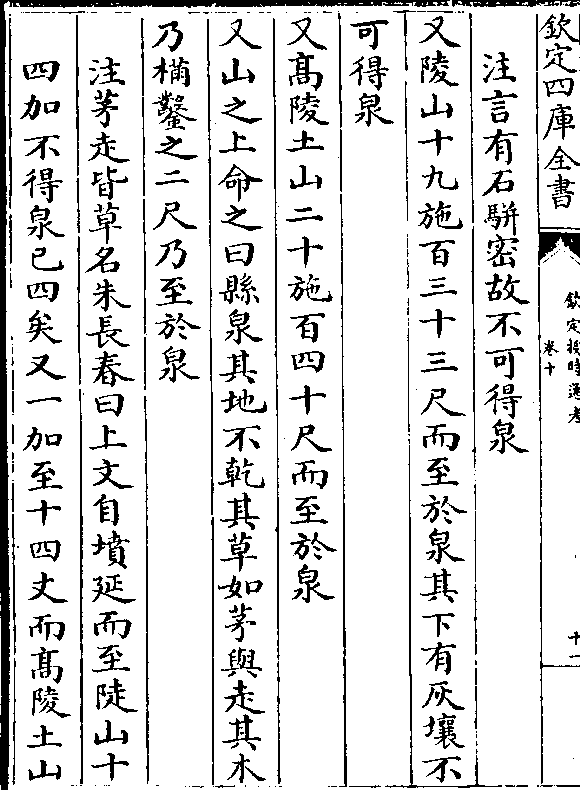 欽定四庫全書
欽定授時通考
卷十
十一
注言有石駢密故不可得泉
又陵山十九施百三十三尺而至於泉其下有灰壤不
可得泉
又髙陵土山二十施百四十尺而至於泉
又山之上命之曰縣泉其地不乾其草如茅與走其木
乃樠鑿之二尺乃至於泉
注茅走皆草名朱長春曰上文自墳延而至陡山十
四加不得泉已四矣又一加至十四丈而髙陵土山